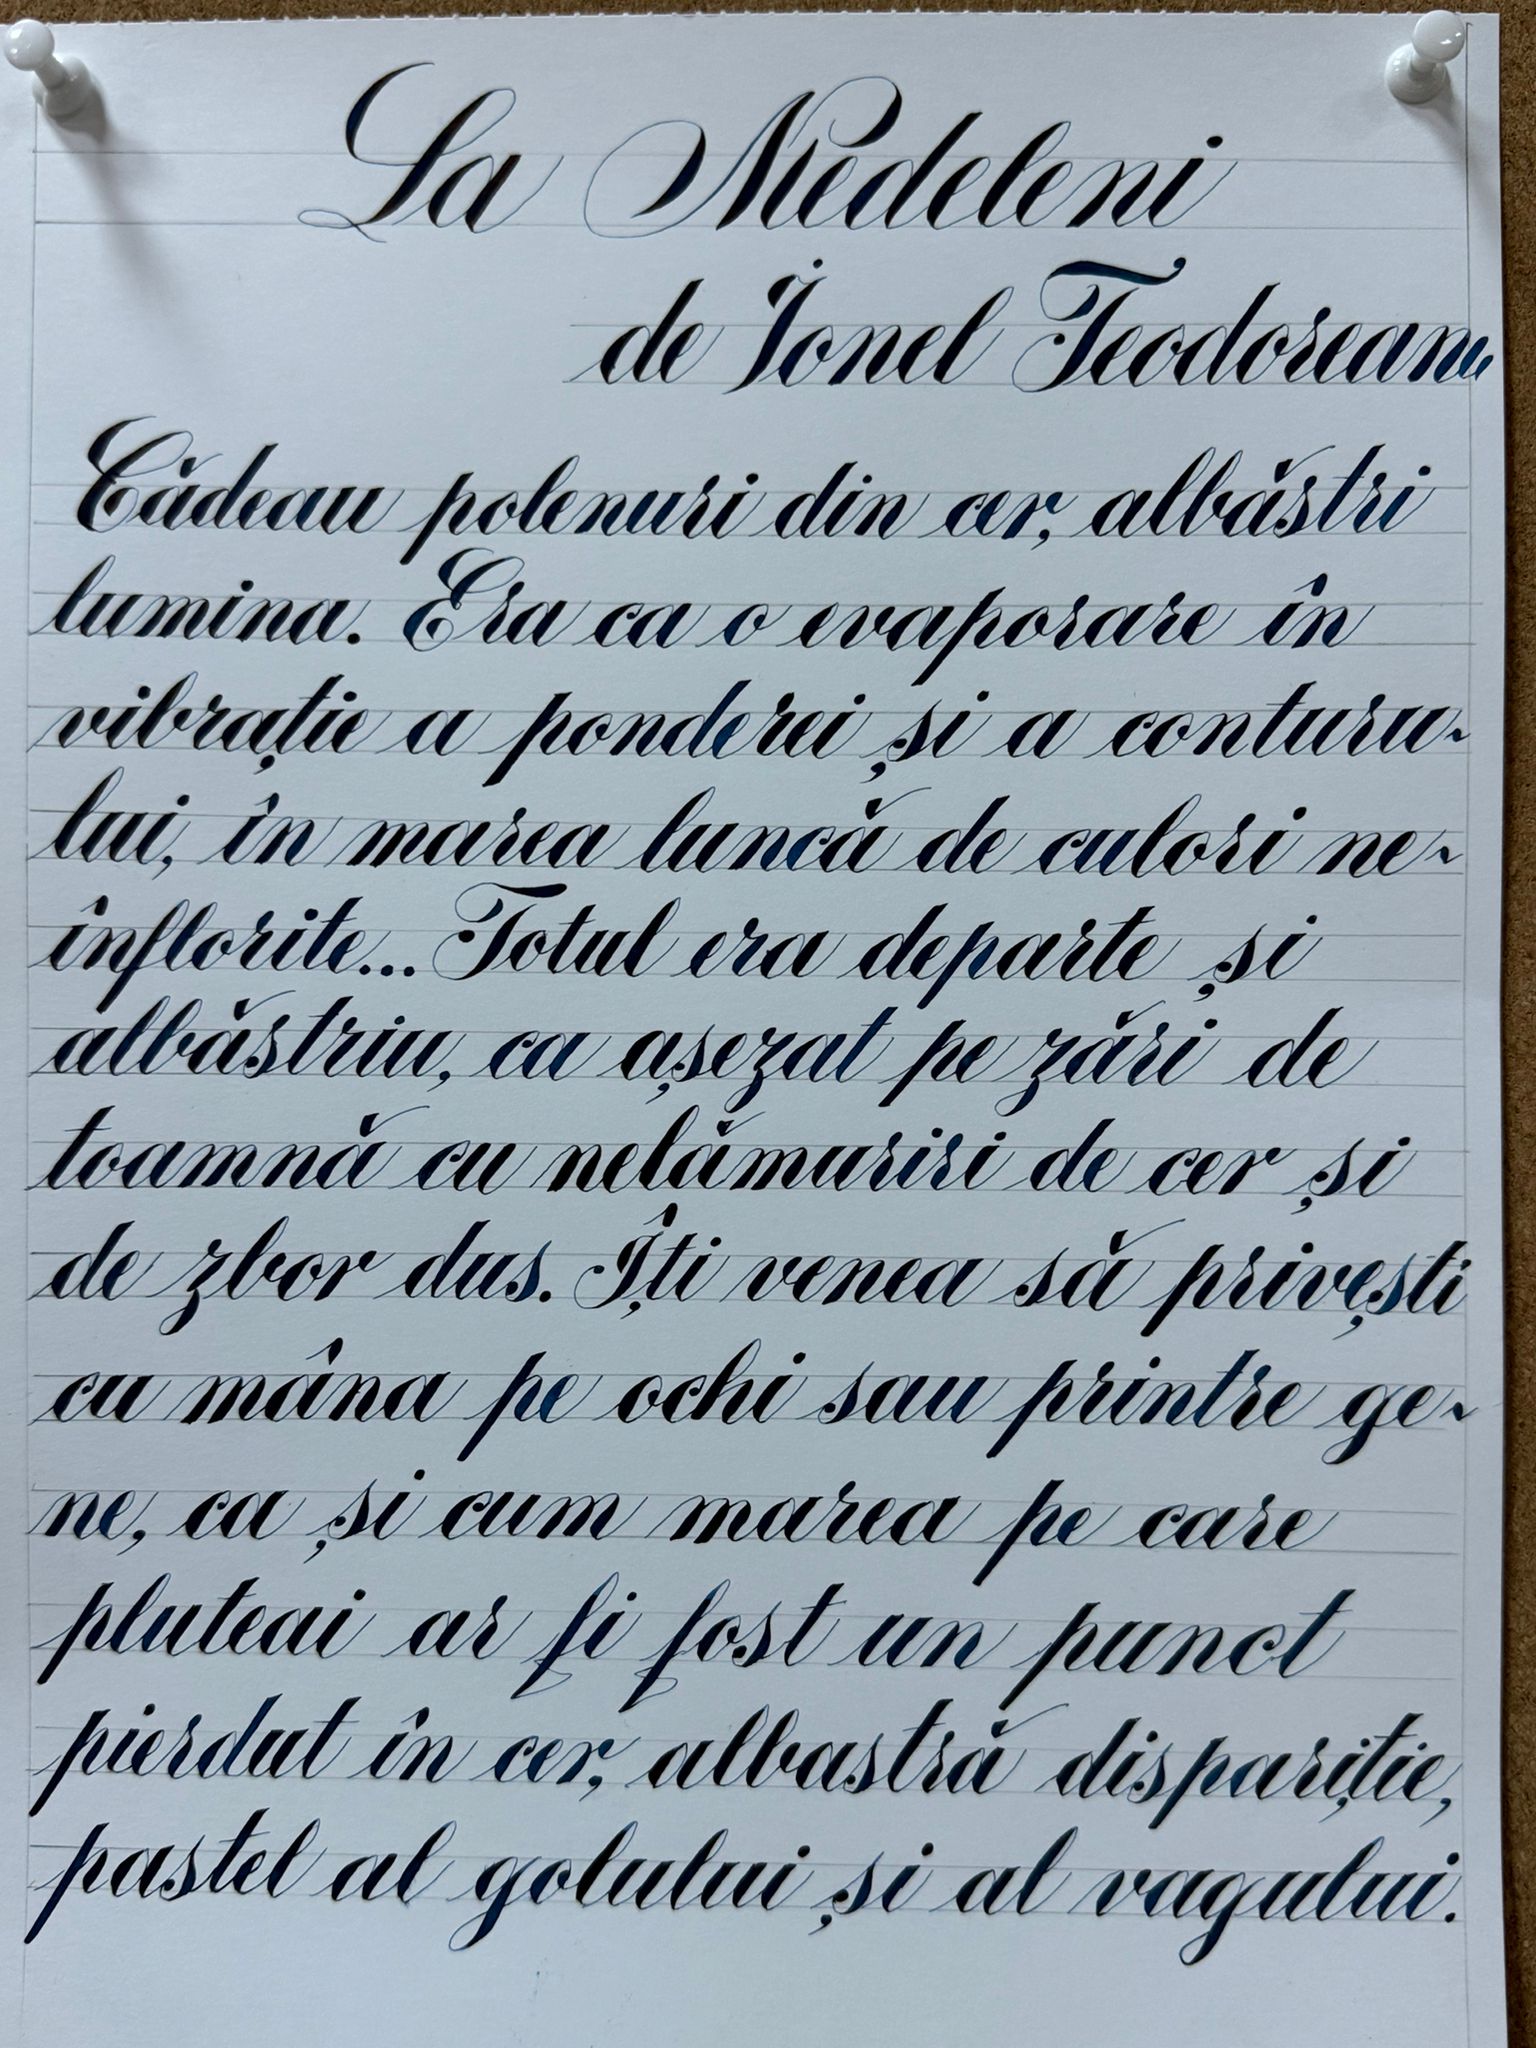 La Medeleni
de Ionel Teodoreanu
Cădeau polenuri din cer, albăstri
lumina. Era ca o evaporare în
vibrație a ponderei și a conturu-
lui, în marea luncă de culori ne-
înflorite... Totul era departe și
albăstriu, ca așezat pe zări de
toamnă cu nelămuriri de cer și
de zbor dus. Îți venea să privești
cu mâna pe ochi sau printre ge-
ne, ca și cum marea pe care
pluteai ar fi fost un punct
pierdut în cer, albastră dispariție,
pastel al golului și al vagului.